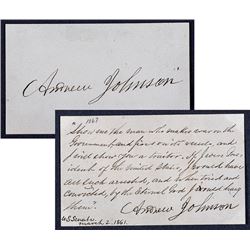 Andrew Johnson
" 1861
Show me the man who makes war on the
Government, and fires on its vessels, and
I will show you a traitor. If I were Pres-
ident of the United States, I would have
all such arrested, and when tried and
convicted, by the Eternal God, I would hang
them."
U.S. Senate,
March 2. 1861.
Andrew Johnson